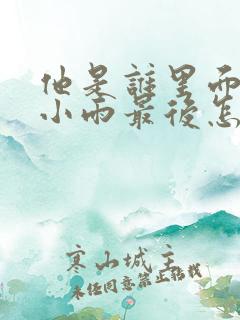 他是誰里面
小雨最後怎
寒山城主
未经同意禁止转载